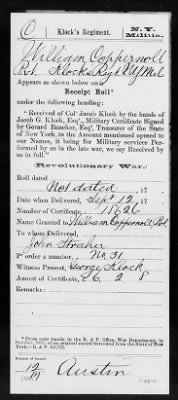 C
Klock's Regiment.
N. Y.
Militia.
William Coppernoll
Pvt, Klocks Regt N Y Mil
Appears as shown below on a
Receipt Roll*
under the following heading:
"Received of Col° Jacob Klock by the hands of
Jacob G. Klock, Esq', Military Certificate Signed
by Gerard Bancker, Esq', Treasurer of the State of
New York, to the Amount mentioned opposed to our
Names, it being for Military services Per-
formed by us in the late war, we say Received by
us in full."
Revolutionary War.
Roll dated
Not dated, 17
Date when Delivered, Sept 12, 17
Number of Certificate, 11826
Name Granted to William Coppernoll Pvt
To whom Delivered,
John Strader
P order a number, No. 31
Witness Present, George Klock
Amount of Certificate, £6. 2 8
Remarks:
Number of roll:
12
Austin